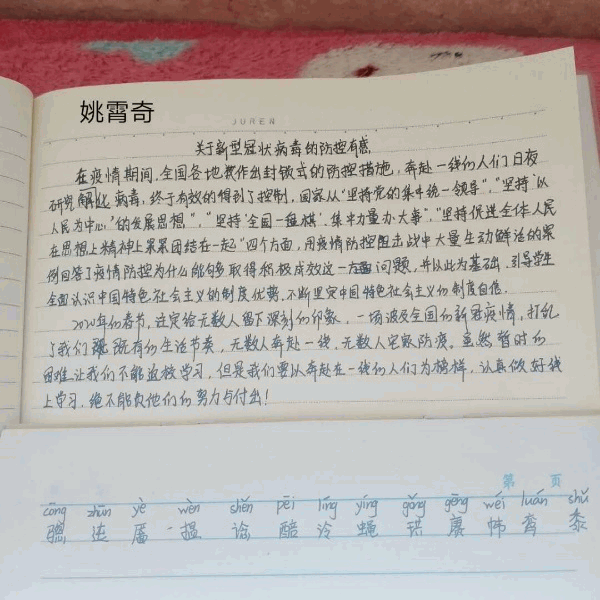 姚霄奇
JUREN
关于新型冠状病毒的防控有感
在疫情期间,全国各地都作出封锁式的防控措施,奔赴一线的人们日夜
研究解化病毒,终于有效的得到了控制,国家从“坚持党的集中统一领导”,“坚持以
人民为中心”的发展思想”,“坚持‘全国一盘棋’,集中力量办大事”,“坚持促进全体人民
在思想上精神上紧紧团结在一起”四个方面,用疫情防控阻击战中大量生动鲜活的案
例回答了疫情防控为什么能够取得积极成效这一方面问题,并以此为基础,引导学生
全面认识中国特色社会主义的制度优势,不断坚定中国特色社会主义的制度自信.
2020年的春节,注定给无数人留下深刻的印象,一场波及全国的新冠疫情,打乱
了我们既有的生活节奏,无数人奔赴一线,无数人宅家防疫。虽然暂时的
困难让我们不能返校学习,但是我们要以奔赴在一线的人们为榜样,认真做好线
上学习,绝不能负他们的努力与付出!
第 页
cōng zhūn yè wèn shěn pēi líng yíng gǒng gēng wéi luán shǔ
骢 迍 揾 谂 醅 泠 蝇 珙 赓 帏 脔 黍